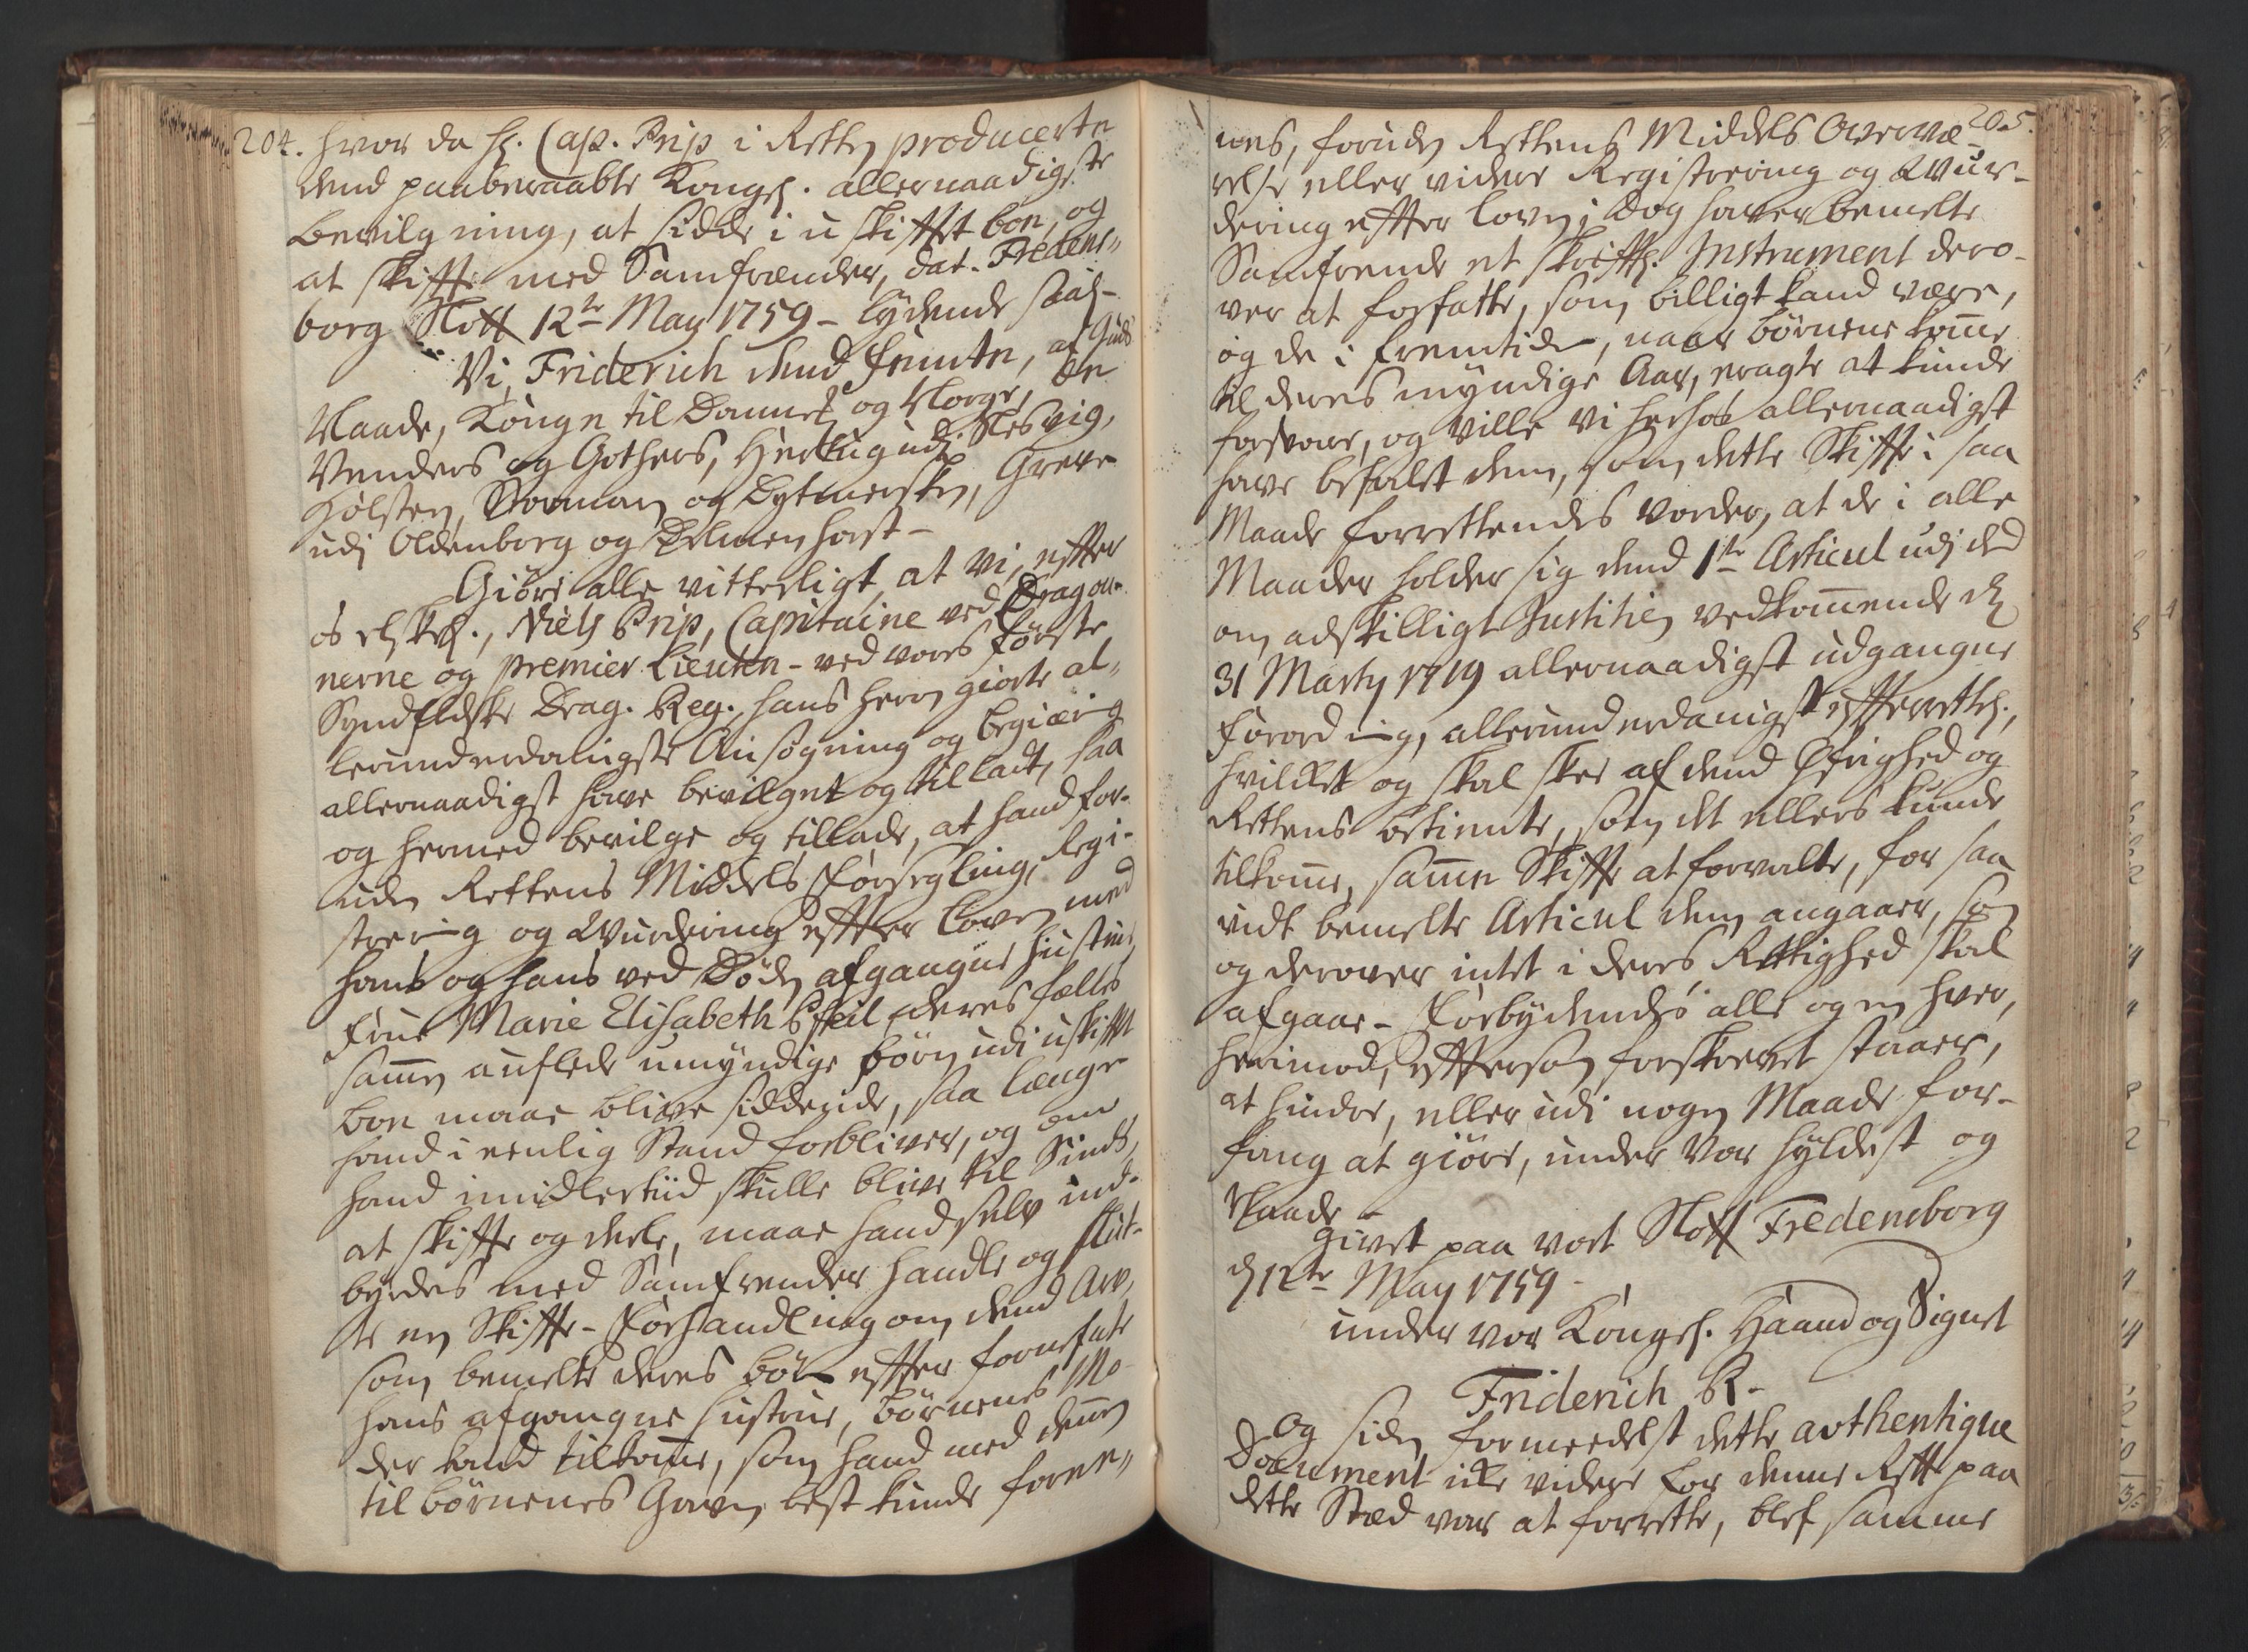 204. hvor da Hr. Cap. Prip i Retten producerte
dend paaberaabte Kongl. allernaadigste
Bevilgning, at sidde i uskifftet boe, og
at skiffte med Samfrænder, dat. Fredens"
borg Slott 12te May 1759 - lydende saal-
Vi, Friderich dend Femte, af Guds
Naade, Konge til Danmk og Norge, De
Venders og Gothers, Hertug udj Slesvig,
Holsten, Stormarn og Dytmersken, Greve
udj Oldenborg og Delmenhorst -
Giøre alle vitterligt, at Vi, effter
os elskel., Niels Prip, Capitaine ved Dragou-
nerne og premier Lieuten - ved vores første
Syndfieldske Drag. Reg., hans herom giorte al"
lerunderdanigste Ansøgning og begiæring
allernaadigst have bevilget og tilladt, saa
og hermed bevilge og tillade, at hand for-
uden Rettens Middels Forsegling, Regi-
strering og Wurdering effter Loven med
hans og hans ved Døden afgangne Hustrue,
Frue Marie Elisabeth Pheil deres fælles
samen auflede umyndige børn udi uskifft
boe maae blive siddende, saa længe
hand i eenlig Stand forbliver, og om
hand imidlertiid skulle blive til Sinds,
at skiffte og deele, maae hand selv ind-
byrdes med Samfrender handle og slut-
te en Skiffte-Forhandling om dend Arv,
som bemelte deres børn effter fornefnte
hans afgangne Hustrue, børnenes Mo-
der kand tilkome, som hand med denem
til børnenes Gavn, best kunde foree"
205.
nes, foruden Rettens Middels Overvæ-
relse eller videre Registrering og Wur-
dering effter Loven; Dog haver bemelte
Samfrende et skrifftl. Instrument dero-
ver at forfatte, som billigt kand være,
og de i fremtiden, naar børnene kome
til deres myndige Aar, eragte at kunde
forsvare, og Ville Vi herhos allernaadigst
have befalet dem, som dette Skiffte i saa
Maade forrettendes vorder, at de i alle
Maader holder sig dend 1te Articul udj den
om adskilligt Justitien vedkomende dn
31 Marty 1719 allernaadigst udgangne
Forordning, allerunderdanigst effterrettel.,
hvilket og skal skee af dend Øfrighed og
Rettens betiente, som det ellers kunde
tilkome, same Skiffte at forvalte, for saa
vidt bemelte Articul dem angaaer, som
og derover intet i deres Rettighed skal
afgaae - Forbydendes alle og en hver,
herimod, efftersom forskrevet staaer,
at hindre, eller udi nogen Maade for-
fang at giøre, under Vor Hyldest og
Naade -
Givet paa vort Slott Fredensborg
d 12te May 1759 -
under vor Kongel. Haand og Signet
Friderich R -
Og siden formedelst dette avthentique
Document icke videre for denne Rett paa
dette Stæd var at forrette, blef samme